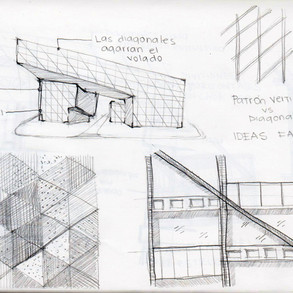 Las diagonales
agarran el
volado
Patrón
vs
Diagona
IDEAS FA